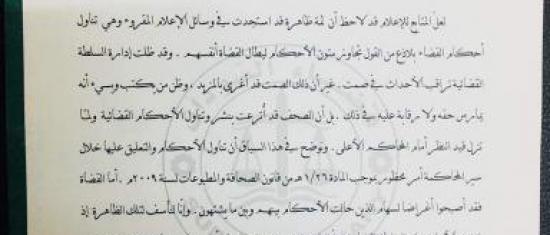 لعل المتابع للإعلام قد لاحظ أن ثمة ظاهرة قد استجدت في وسائل الإعلام المقروء وهي تناول
أحكام القضاء بلاذع من القول يتجاوز متون الأحكام ليطال القضاة أنفسهم . وقد ظلت إدارة السلطة
القضائية تراقب الأحداث في صمت . غير أن ذلك الصمت قد أغرى بالمزيد ، وظن من يكتب ويسيء أنه
يمارس حقه ولا رقابة عليه في ذلك . بل أن الصحف قد أترعت بنشر وتناول الأحكام القضائية ولما
تزل قيد النظر أمام المحاكم الأعلى . ونوضح في هذا السياق أن تناول الأحكام والتعليق عليها خلال
سير المحاكمة أمر محظور بموجب المادة ١/٢٦هـ من قانون الصحافة والمطبوعات لسنة ٢٠٠٩م . أما القضاة
فقد أصبحوا أغراضا لسهام الذين حالت الأحكام بينهم وبين ما يشتهون . وإنا لنأسف لتلك الظاهرة إذ